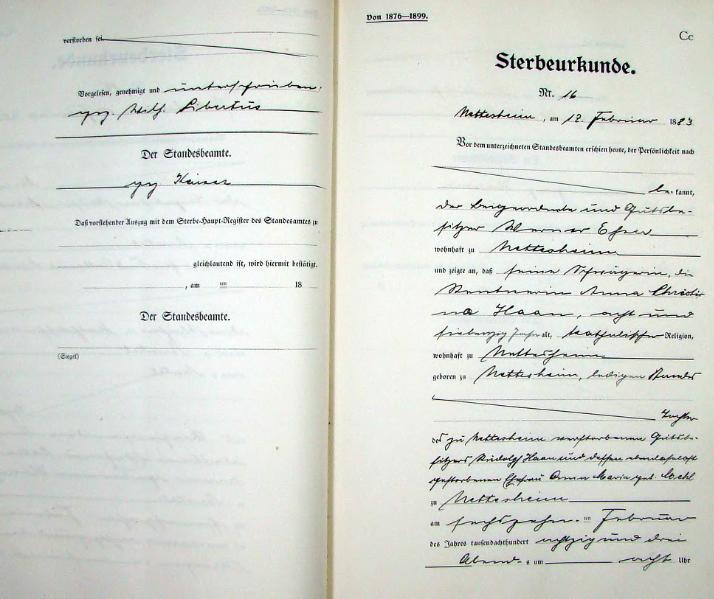 verstorben sei
Vorgelesen, genehmigt und unterschrieben.
gez. Libertus
Der Standesbeamte.
gez Kaiser
Daß vorstehender Auszug mit dem Sterbe-Haupt-Register des Standesamts zu
gleichlautend ist, wird hiermit bestätigt.
, am ten 18
Der Standesbeamte.
(Siegel)
Von 1876—1899.
Cc
Sterbeurkunde.
Nr. 16
Nettersheim, am 12. Februar 1883
Vor dem unterzeichneten Standesbeamten erschien heute, der Persönlichkeit nach
be kannt,
der Beigeordnete und Gutsbe-
sitzer Werner Esser
wohnhaft zu Nettersheim
und zeigte an, daß seine Schwägerin, die
Rentnerin Anna Christi
na Haan, acht und
siebenzig Jahre alt, katholischer Religion,
wohnhaft zu Nettersheim
geboren zu Nettersheim, ledigen Standes
Tochter
des zu Nettersheim verstorbenen Gutsbe-
sitzers Rudolf Haan und dessen ebendaselbst
gestorbenen Ehefrau Anna Maria geb.
zu Nettersheim
am ten Februar
des Jahres tausendachthundert achtzig und drei
Abends um acht Uhr